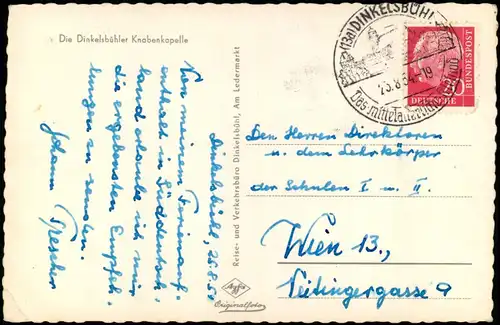 Die Dinkelsbühler Knabenkapelle
Dinkelsbühl, 23.8.54
Von meinem Ferienauf-
enthalt in Süddeutsch-
land erlaube ich mir
die ergebensten Empfeh-
lungen zu senden.
Johann
Reise- und Verkehrsbüro Dinkelsbühl, Am Ledermarkt
Agfa
Originalfoto
(13a) DINKELSBÜHL
23.8.54.-19
Das mittelalterliche
20
DEUTSCHE
BUNDESPOST
Den Herren Direktoren
u. dem Lehrkörper
der Schulen I u. II.
Wien 13.,
Veitingergasse 9